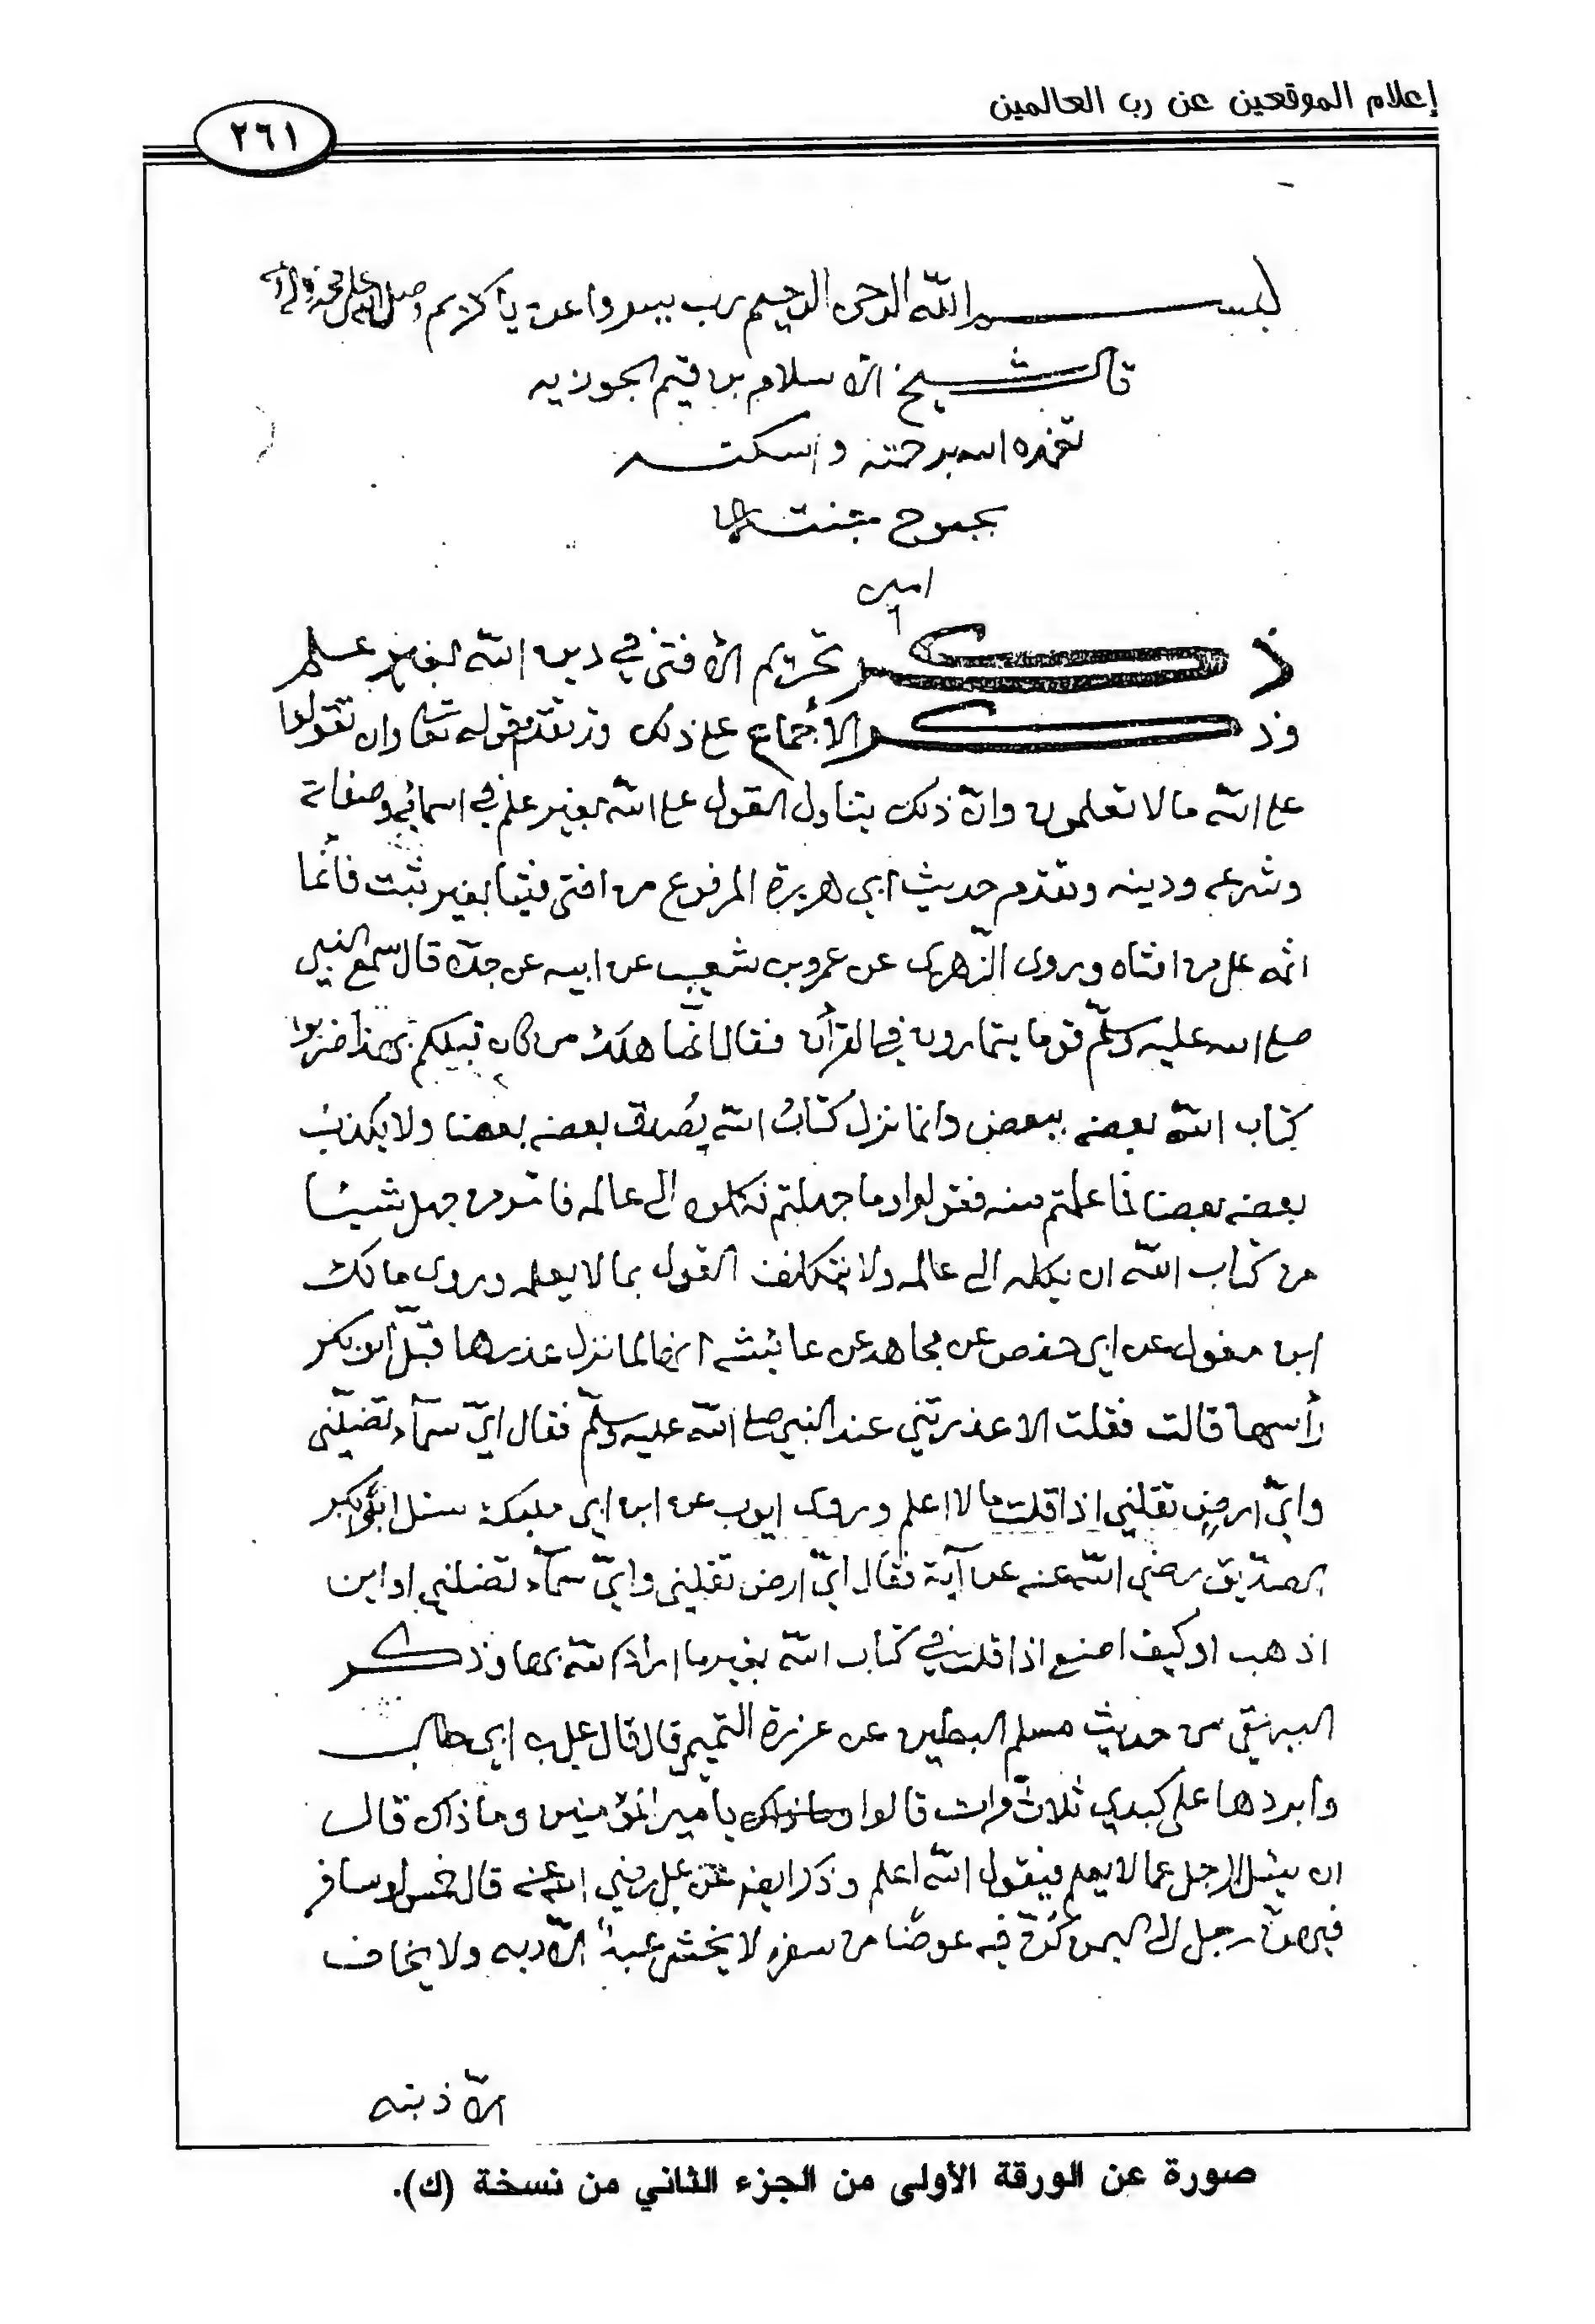 إعلام الموقعين عن رب العالمين
٢٦١
بسم الله الرحمن الرحيم رب يسر واعن يا كريم وصلى الله على محمد
قال شيخ الاسلام بن قيم الجوزيه
تغمده الله برحمته واسكنه
بحبوح جنته
امين
ذكر تحريم الافتى في دين الله بغير علم
وذكر الاجماع على ذلك وقد تقدم قوله تعا وان تقولوا
على الله ما لا تعلمون وانّ ذلك يتناول القول على الله بغير علم في اسمائه وصفاته
وشرعه ودينه وتقدم حديث ابي هريرة المرفوع من افتى فتيا بغير ثبت فانّما
اثمه على من افتاه وروى الزّهرى عن عمرو بن شعيب عن ابيه عن جدّه قال سمع النبي
صلى الله عليه وسلّم قوما يتمارون في القرآن فقال انّما هلك من كان قبلكم بهذا ضربوا
كتاب الله بعضه ببعض وانما نزل كتابُ الله يُصدق بعضه بعضا ولا يكذب
بعضه بعضا فما علمتم منه فقولوا وما جهلتم فكلوه الى عالمه فامر من جهل شيئا
من كتاب الله ان يكله الى عالمه ولا يتكلف القول بما لا يعلمه وروى مالك
ابن مغول عن ابي حفص عن مجاهد عن عائشه انها لما نزل عذرها قبّل أبو بكر
رأسها قالت فقلت الا عذرتني عند النبي صلى الله عليه وسلّم فقال ايّ سمآء تضلّني
وايّ ارضٍ تقلني اذا قلت ما لا اعلم وروى ايوب عن ابن ابي مليكة سئل ابو بكر
الصدّيق رضي الله عنه عن آية فقال ايّ ارض تقلني وايّ سمآء تضلني او اين
اذهب او كيف اصنع اذا قلت في كتاب الله بغير ما اراد الله بها وذكر
البيهقي من حديث مسلم البطين عن عزرة التميمي قال قال علي بن ابي طالب
وأبردها على كبدي ثلاث مرات قالوا وما ذاك يا أمير المؤمنين وما ذاك قال
ان يسئل الرجل عما لا يعلم فيقول الله اعلم وذكر ايضا عن علي رضي الله عنه قال خمس لو سافر
فيهنّ رجل الى اليمن كُنّ فيه عوضًا من سفره لا يخشى عبدٌ الّا ربه ولا يخاف
الّا ذنبه
صورة عن الورقة الأولى من الجزء الثاني من نسخة (ك).